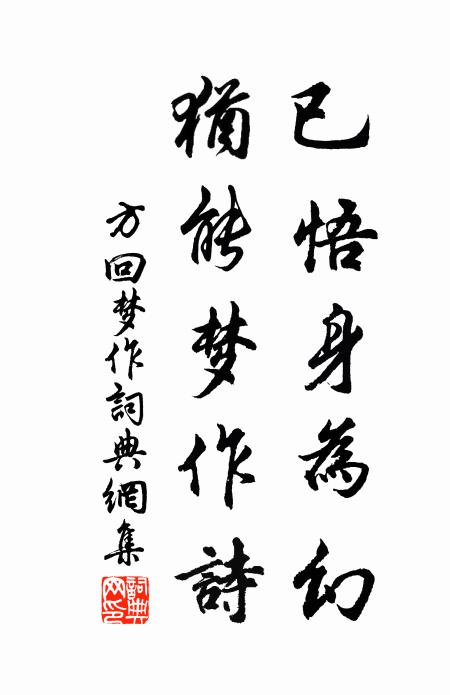 已悟身為幻
猶能梦作詩
方回梦作詞典網集
詞典網印